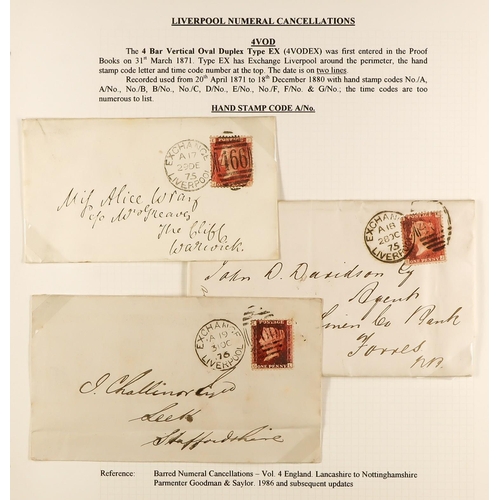 LIVERPOOL NUMERAL CANCELLATIONS
4VOD
The 4 Bar Vertical Oval Duplex Type EX (4VODEX) was first entered in the Proof
Books on 31st March 1871. Type EX has Exchange Liverpool around the perimeter, the hand
stamp code letter and time code number at the top. The date is on two lines.
Recorded used from 20th April 1871 to 18th December 1880 with hand stamp codes No./A,
A/No., No./B, B/No., No./C, D/No., E/No., No./F, F/No. & G/No.; the time codes are too
numerous to list.
HAND STAMP CODE A/No.
EXCHANGE
A 17
29 DE
75
LIVERPOOL
466
Miss Alice Wray
c/o Mrs Greaves
The Cliff
Warwick.
EXCHANGE
A 18
28 OC
75
LIVERPOOL
John D. Davidson Esq
Agent
Linen Co Bank
of
Forres
N.B.
EXCHANGE
A 19
31 OC
76
LIVERPOOL
POSTAGE
ONE PENNY
J. Challinor Esqre
Leek
Staffordshire
Reference: Barred Numeral Cancellations – Vol. 4 England. Lancashire to Nottinghamshire
Parmenter Goodman & Saylor. 1986 and subsequent updates